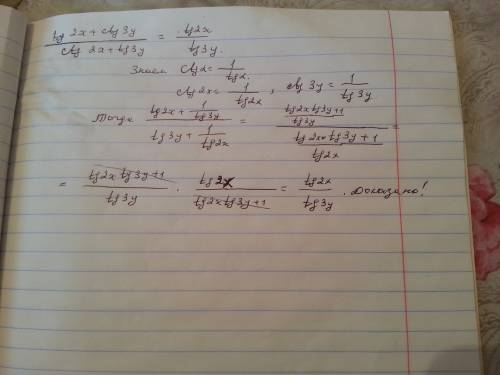 tg 2x + ctg 3y / ctg 2x + tg 3y = tg 2x / tg 3y.
Знаем ctg α = 1 / tg α.
ctg 2x = 1 / tg 2x , ctg 3y = 1 / tg 3y
Тогда (tg 2x + 1 / tg 3y) / (tg 3y + 1 / tg 2x) = ((tg 2x tg 3y + 1) / tg 3y) / ((tg 2x tg 3y + 1) / tg 2x) =
= (tg 2x tg 3y + 1) / tg 3y · tg 2x / (tg 2x tg 3y + 1) = tg 2x / tg 3y . Доказано!